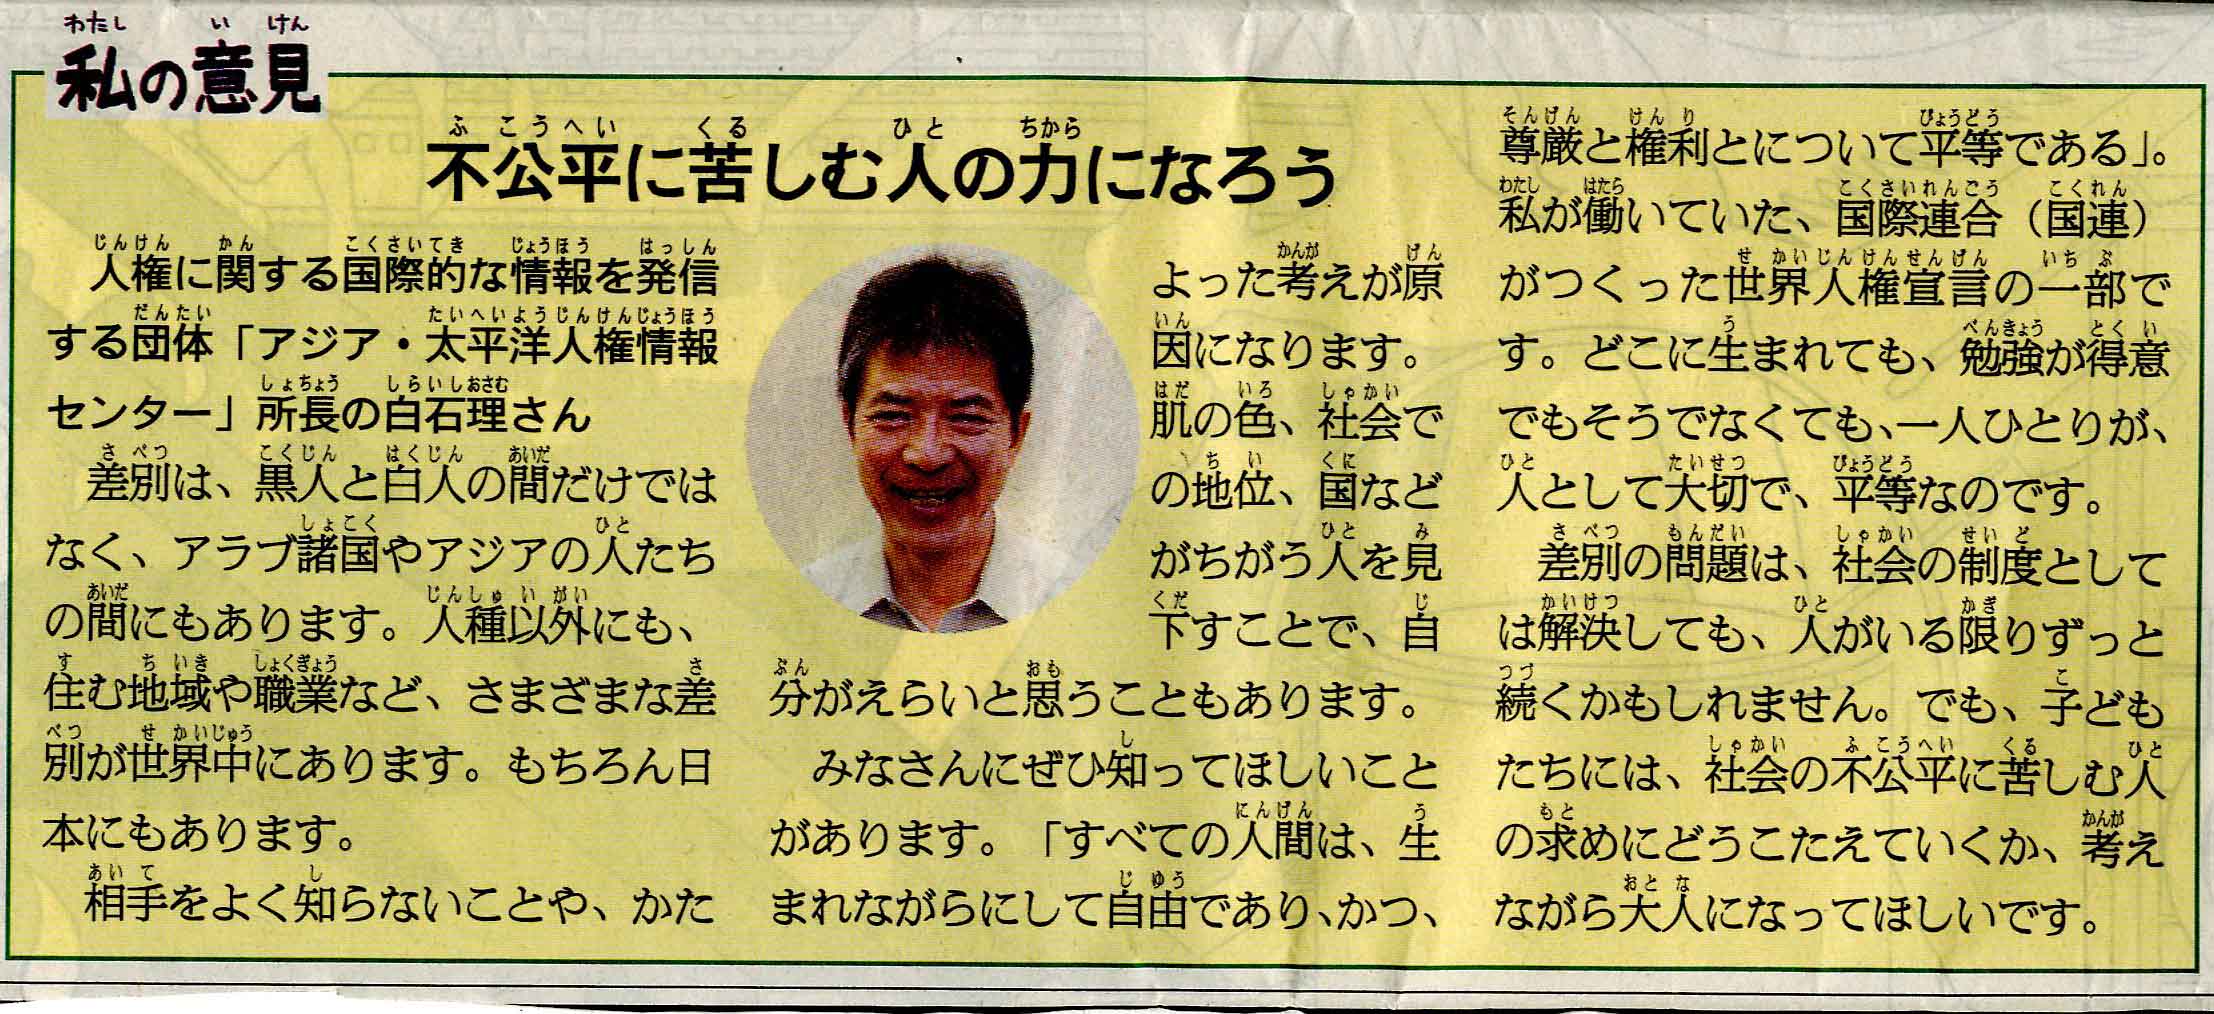 私の意見
不公平に苦しむ人の力になろう
人権に関する国際的な情報を発信
する団体「アジア・太平洋人権情報
センター」所長の白石理さん
差別は、黒人と白人の間だけでは
なく、アラブ諸国やアジアの人たち
の間にもあります。人種以外にも、
住む地域や職業など、さまざまな差
別が世界中にあります。もちろん日
本にもあります。
相手をよく知らないことや、かた
よった考えが原
因になります。
肌の色、社会で
の地位、国など
がちがう人を見
下すことで、自
分がえらいと思うこともあります。
みなさんにぜひ知ってほしいこと
があります。「すべての人間は、生
まれながらにして自由であり、かつ、
尊厳と権利とについて平等である」。
私が働いていた、国際連合（国連）
がつくった世界人権宣言の一部で
す。どこに生まれても、勉強が得意
でもそうでなくても、一人ひとりが、
人として大切で、平等なのです。
差別の問題は、社会の制度として
は解決しても、人がいる限りずっと
続くかもしれません。でも、子ども
たちには、社会の不公平に苦しむ人
の求めにどうこたえていくか、考え
ながら大人になってほしいです。